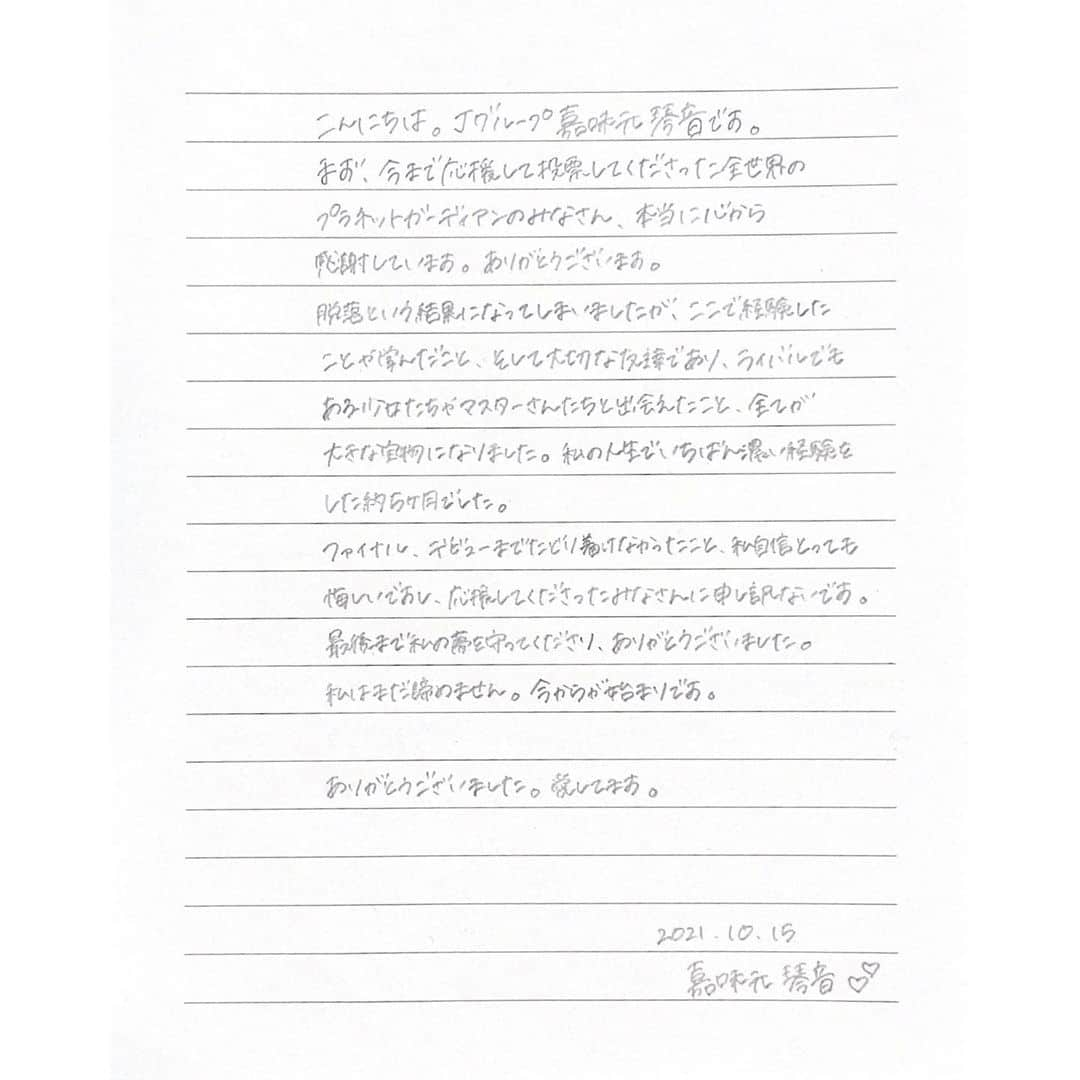 こんにちは。Jグループ嘉味元琴音です。
まず、今まで応援して投票してくださった全世界の
プラネットガーディアンのみなさん、本当に心から
感謝しています。ありがとうございます。
脱落という結果になってしまいましたが、ここで経験した
ことや学んだこと、そして大切な友達であり、ライバルでも
ある少女たちやマスターさんたちと出会えたこと、全てが
大きな宝物になりました。私の人生でいちばん濃い経験を
した約5ケ月でした。
ファイナル、デビューまでたどり着けなかったこと、私自信とっても
悔しいですし、応援してくださったみなさんに申し訳ないです。
最後まで私の夢を守ってくださり、ありがとうございました。
私はまだ諦めません。今からが始まりです。
ありがとうございました。愛してます。
2021.10.15
嘉味元 琴音 ♡♡